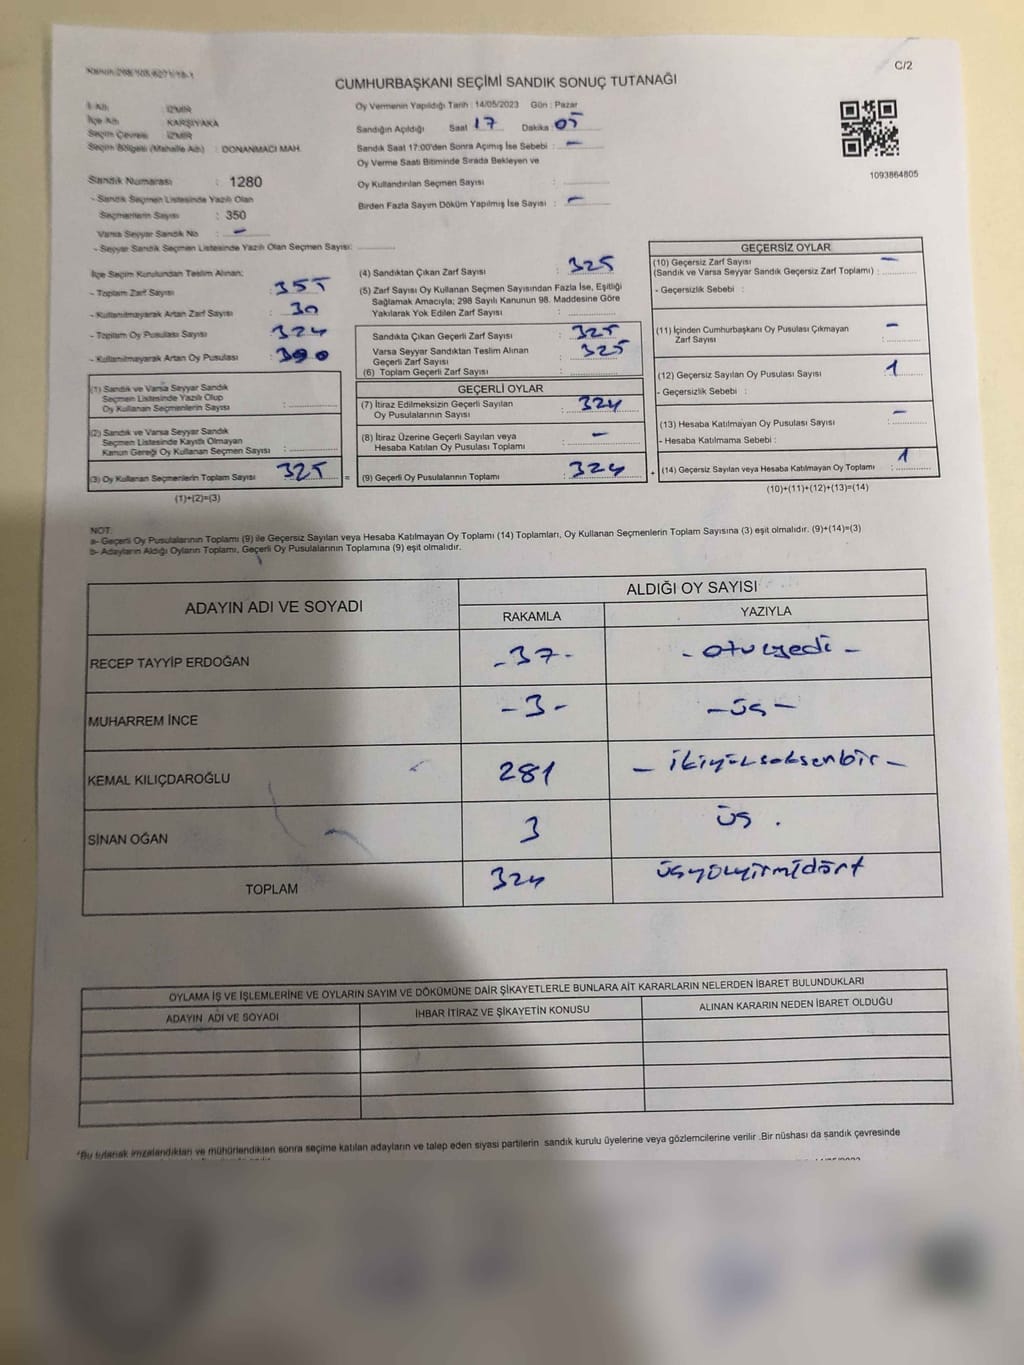 Kanun:298/105,6271/18-1
C/2
CUMHURBAŞKANI SEÇİMİ SANDIK SONUÇ TUTANAĞI
İl Adı : İZMİR
İlçe Adı : KARŞIYAKA
Seçim Çevresi : İZMİR
Seçim Bölgesi (Mahalle Adı) : DONANMACI MAH.
Sandık Numarası : 1280
- Sandık Seçmen Listesinde Yazılı Olan
Seçmenlerin Sayısı : 350
Varsa Seyyar Sandık No : -
- Seyyar Sandık Seçmen Listesinde Yazılı Olan Seçmen Sayısı: ............
Oy Vermenin Yapıldığı Tarih : 14/05/2023 Gün : Pazar
Sandığın Açıldığı Saat 17 Dakika 05
Sandık Saat 17:00'den Sonra Açımış İse Sebebi : -
Oy Verme Saati Bitiminde Sırada Bekleyen ve
Oy Kullandırılan Seçmen Sayısı :
Birden Fazla Sayım Döküm Yapılmış İse Sayısı : -
1093864805
İlçe Seçim Kurulundan Teslim Alınan:
- Toplam Zarf Sayısı : 355
- Kullanılmayarak Artan Zarf Sayısı : 30
- Toplam Oy Pusulası Sayısı : 324
- Kullanılmayarak Artan Oy Pusulası :
(1) Sandık ve Varsa Seyyar Sandık
Seçmen Listesinde Yazılı Olup
Oy Kullanan Seçmenlerin Sayısı :
(2) Sandık ve Varsa Seyyar Sandık
Seçmen Listesinde Kayıtlı Olmayan
Kanun Gereği Oy Kullanan Seçmen Sayısı :
(3) Oy Kullanan Seçmenlerin Toplam Sayısı : 325 =
(1)+(2)=(3)
(4) Sandıktan Çıkan Zarf Sayısı : 325
(5) Zarf Sayısı Oy Kullanan Seçmen Sayısından Fazla İse, Eşitliği
Sağlamak Amacıyla; 298 Sayılı Kanunun 98. Maddesine Göre
Yakılarak Yok Edilen Zarf Sayısı :
Sandıkta Çıkan Geçerli Zarf Sayısı : 325
Varsa Seyyar Sandıktan Teslim Alınan
Geçerli Zarf Sayısı : 325
(6) Toplam Geçerli Zarf Sayısı :
GEÇERLİ OYLAR
(7) İtiraz Edilmeksizin Geçerli Sayılan
Oy Pusulalarının Sayısı : 324
(8) İtiraz Üzerine Geçerli Sayılan veya
Hesaba Katılan Oy Pusulası Toplamı : -
(9) Geçerli Oy Pusulalarının Toplamı : 324 +
GEÇERSİZ OYLAR
(10) Geçersiz Zarf Sayısı -
(Sandık ve Varsa Seyyar Sandık Geçersiz Zarf Toplamı) :
- Geçersizlik Sebebi :
(11) İçinden Cumhurbaşkanı Oy Pusulası Çıkmayan
Zarf Sayısı : -
(12) Geçersiz Sayılan Oy Pusulası Sayısı : 1
- Geçersizlik Sebebi :
(13) Hesaba Katılmayan Oy Pusulası Sayısı : -
- Hesaba Katılmama Sebebi :
(14) Geçersiz Sayılan veya Hesaba Katılmayan Oy Toplamı : 1
(10)+(11)+(12)+(13)=(14)
NOT:
a- Geçerli Oy Pusulalarının Toplamı (9) ile Geçersiz Sayılan veya Hesaba Katılmayan Oy Toplamı (14) Toplamları, Oy Kullanan Seçmenlerin Toplam Sayısına (3) eşit olmalıdır. (9)+(14)=(3)
b- Adayların Aldığı Oyların Toplamı, Geçerli Oy Pusulalarının Toplamına (9) eşit olmalıdır.
ADAYIN ADI VE SOYADI
ALDIĞI OY SAYISI
RAKAMLA YAZIYLA
RECEP TAYYİP ERDOĞAN -37- - otuzyedi -
MUHARREM İNCE -3- - üç -
KEMAL KILIÇDAROĞLU 281 - ikiyüzseksenbir -
SİNAN OĞAN 3 üç .
TOPLAM 324 üçyüzyirmidört
OYLAMA İŞ VE İŞLEMLERİNE VE OYLARIN SAYIM VE DÖKÜMÜNE DAİR ŞİKAYETLERLE BUNLARA AİT KARARLARIN NELERDEN İBARET BULUNDUKLARI
ADAYIN ADI VE SOYADI İHBAR İTİRAZ VE ŞİKAYETİN KONUSU ALINAN KARARIN NEDEN İBARET OLDUĞU
*Bu tutanak imzalandıktan ve mühürlendikten sonra seçime katılan adayların ve talep eden siyasi partilerin sandık kurulu üyelerine veya gözlemcilerine verilir .Bir nüshası da sandık çevresinde